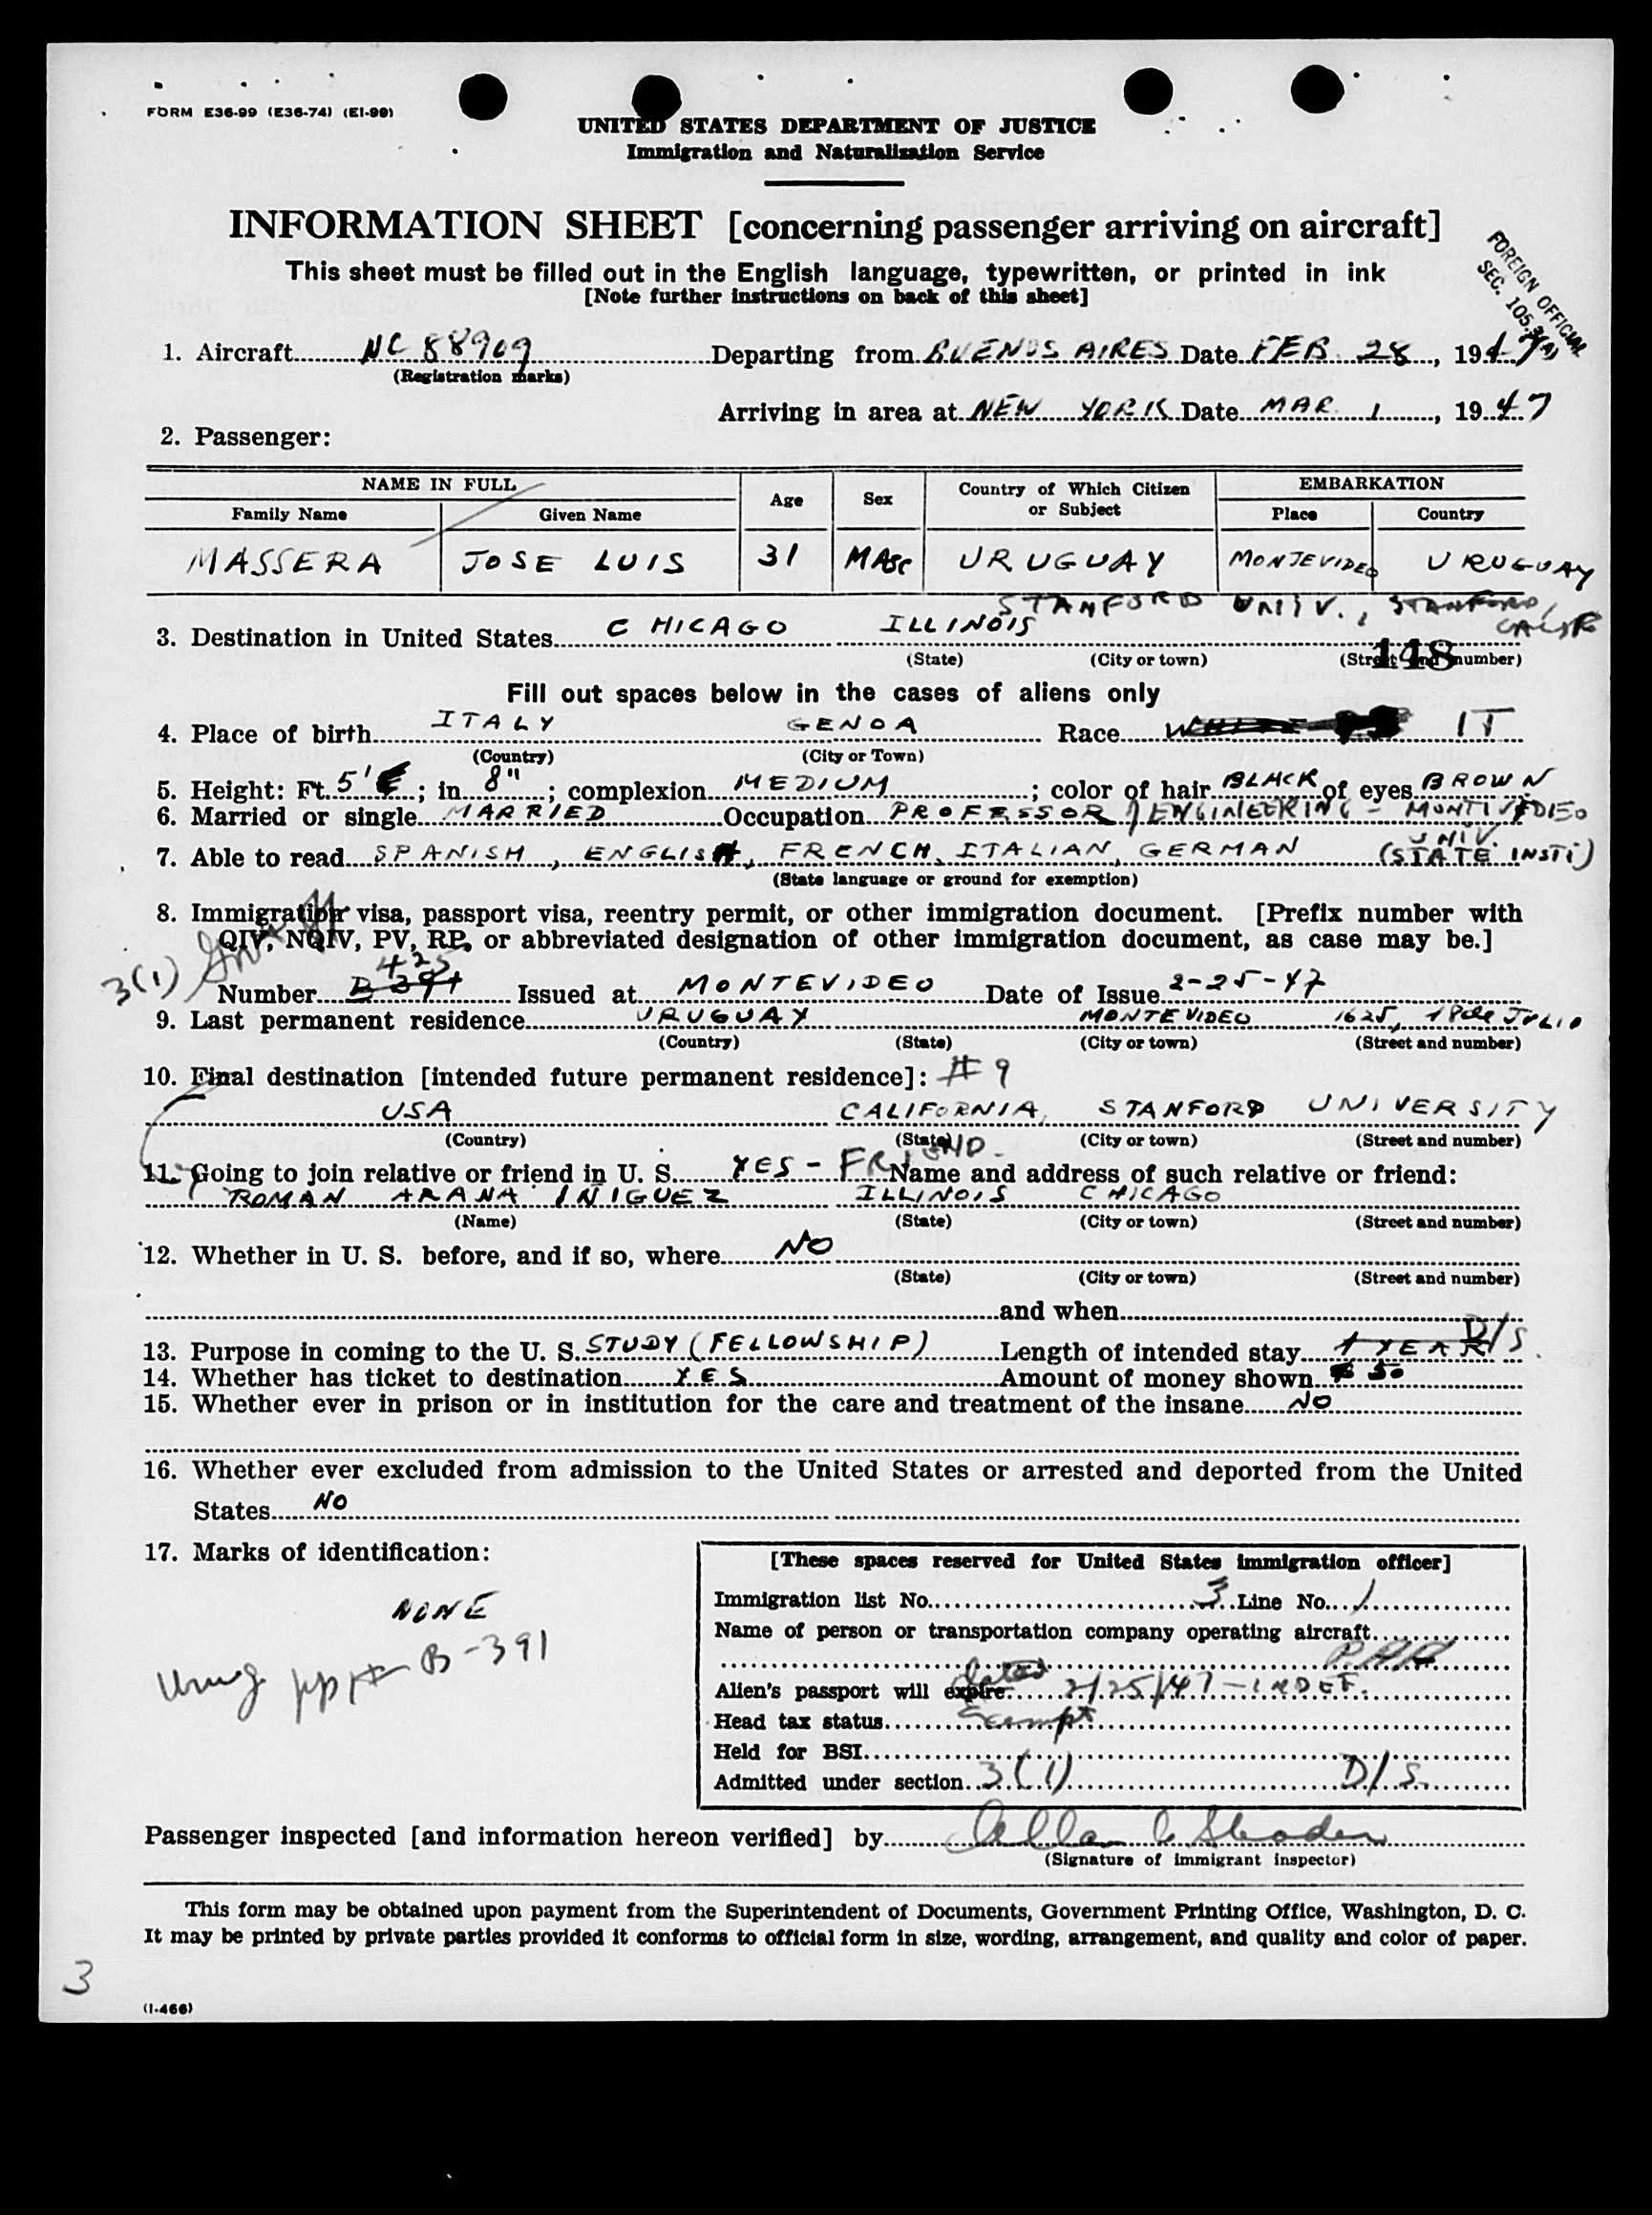 FORM E36-99 (E36-74) (EI-99)
UNITED STATES DEPARTMENT OF JUSTICE
Immigration and Naturalization Service
INFORMATION SHEET [concerning passenger arriving on aircraft]
This sheet must be filled out in the English language, typewritten, or printed in ink
[Note further instructions on back of this sheet]
FOREIGN OFFICIAL
SEC. 105.3(A)
1. Aircraft NC 88909 Departing from BUENOS AIRES Date FEB 28, 1947
(Registration marks)
Arriving in area at NEW YORK Date MAR 1, 1947
2. Passenger:
NAME IN FULL Age Sex Country of Which Citizen or Subject EMBARKATION
Family Name Given Name Place Country
MASSERA JOSE LUIS 31 MASC URUGUAY MONTEVIDEO URUGUAY
STANFORD UNIV., STANFORD, CALIF
3. Destination in United States CHICAGO ILLINOIS
(State) (City or town) (Street and number)
148
Fill out spaces below in the cases of aliens only
4. Place of birth ITALY GENOA Race WHITE IT
(Country) (City or Town)
5. Height: Ft. 5' ; in. 8" ; complexion MEDIUM ; color of hair BLACK of eyes BROWN
6. Married or single MARRIED Occupation PROFESSOR / ENGINEERING - MONTIVEDIEO
UNIV.
7. Able to read SPANISH, ENGLISH, FRENCH, ITALIAN, GERMAN (STATE INSTI)
(State language or ground for exemption)
8. Immigration visa, passport visa, reentry permit, or other immigration document. [Prefix number with
QIV, NQIV, PV, RP, or abbreviated designation of other immigration document, as case may be.]
3(1)
425
Number B 391 Issued at MONTEVIDEO Date of Issue 2-25-47
9. Last permanent residence URUGUAY MONTEVIDEO 1625, JULIO
(Country) (State) (City or town) (Street and number)
10. Final destination [intended future permanent residence]: #9
USA CALIFORNIA, STANFORD UNIVERSITY
(Country) (State) (City or town) (Street and number)
11. Going to join relative or friend in U. S. YES - FRIEND - Name and address of such relative or friend:
ROMAN ARANA INIGUEZ ILLINOIS CHICAGO
(Name) (State) (City or town) (Street and number)
12. Whether in U. S. before, and if so, where NO
(State) (City or town) (Street and number)
and when
13. Purpose in coming to the U. S. STUDY (FELLOWSHIP) Length of intended stay 1 YEAR D/S
14. Whether has ticket to destination YES Amount of money shown $ 50
15. Whether ever in prison or in institution for the care and treatment of the insane NO
16. Whether ever excluded from admission to the United States or arrested and deported from the United
States NO
17. Marks of identification:
NONE
Urug ppt B-391
[These spaces reserved for United States immigration officer]
Immigration list No. 3 Line No. 1
Name of person or transportation company operating aircraft
PAA
dated
Alien's passport will expire 2/25/47 - INDEF.
Head tax status Exempt
Held for BSI
Admitted under section 3(1) D/S.
Passenger inspected [and information hereon verified] by
(Signature of immigrant inspector)
This form may be obtained upon payment from the Superintendent of Documents, Government Printing Office, Washington, D. C.
It may be printed by private parties provided it conforms to official form in size, wording, arrangement, and quality and color of paper.
3
(I-466)